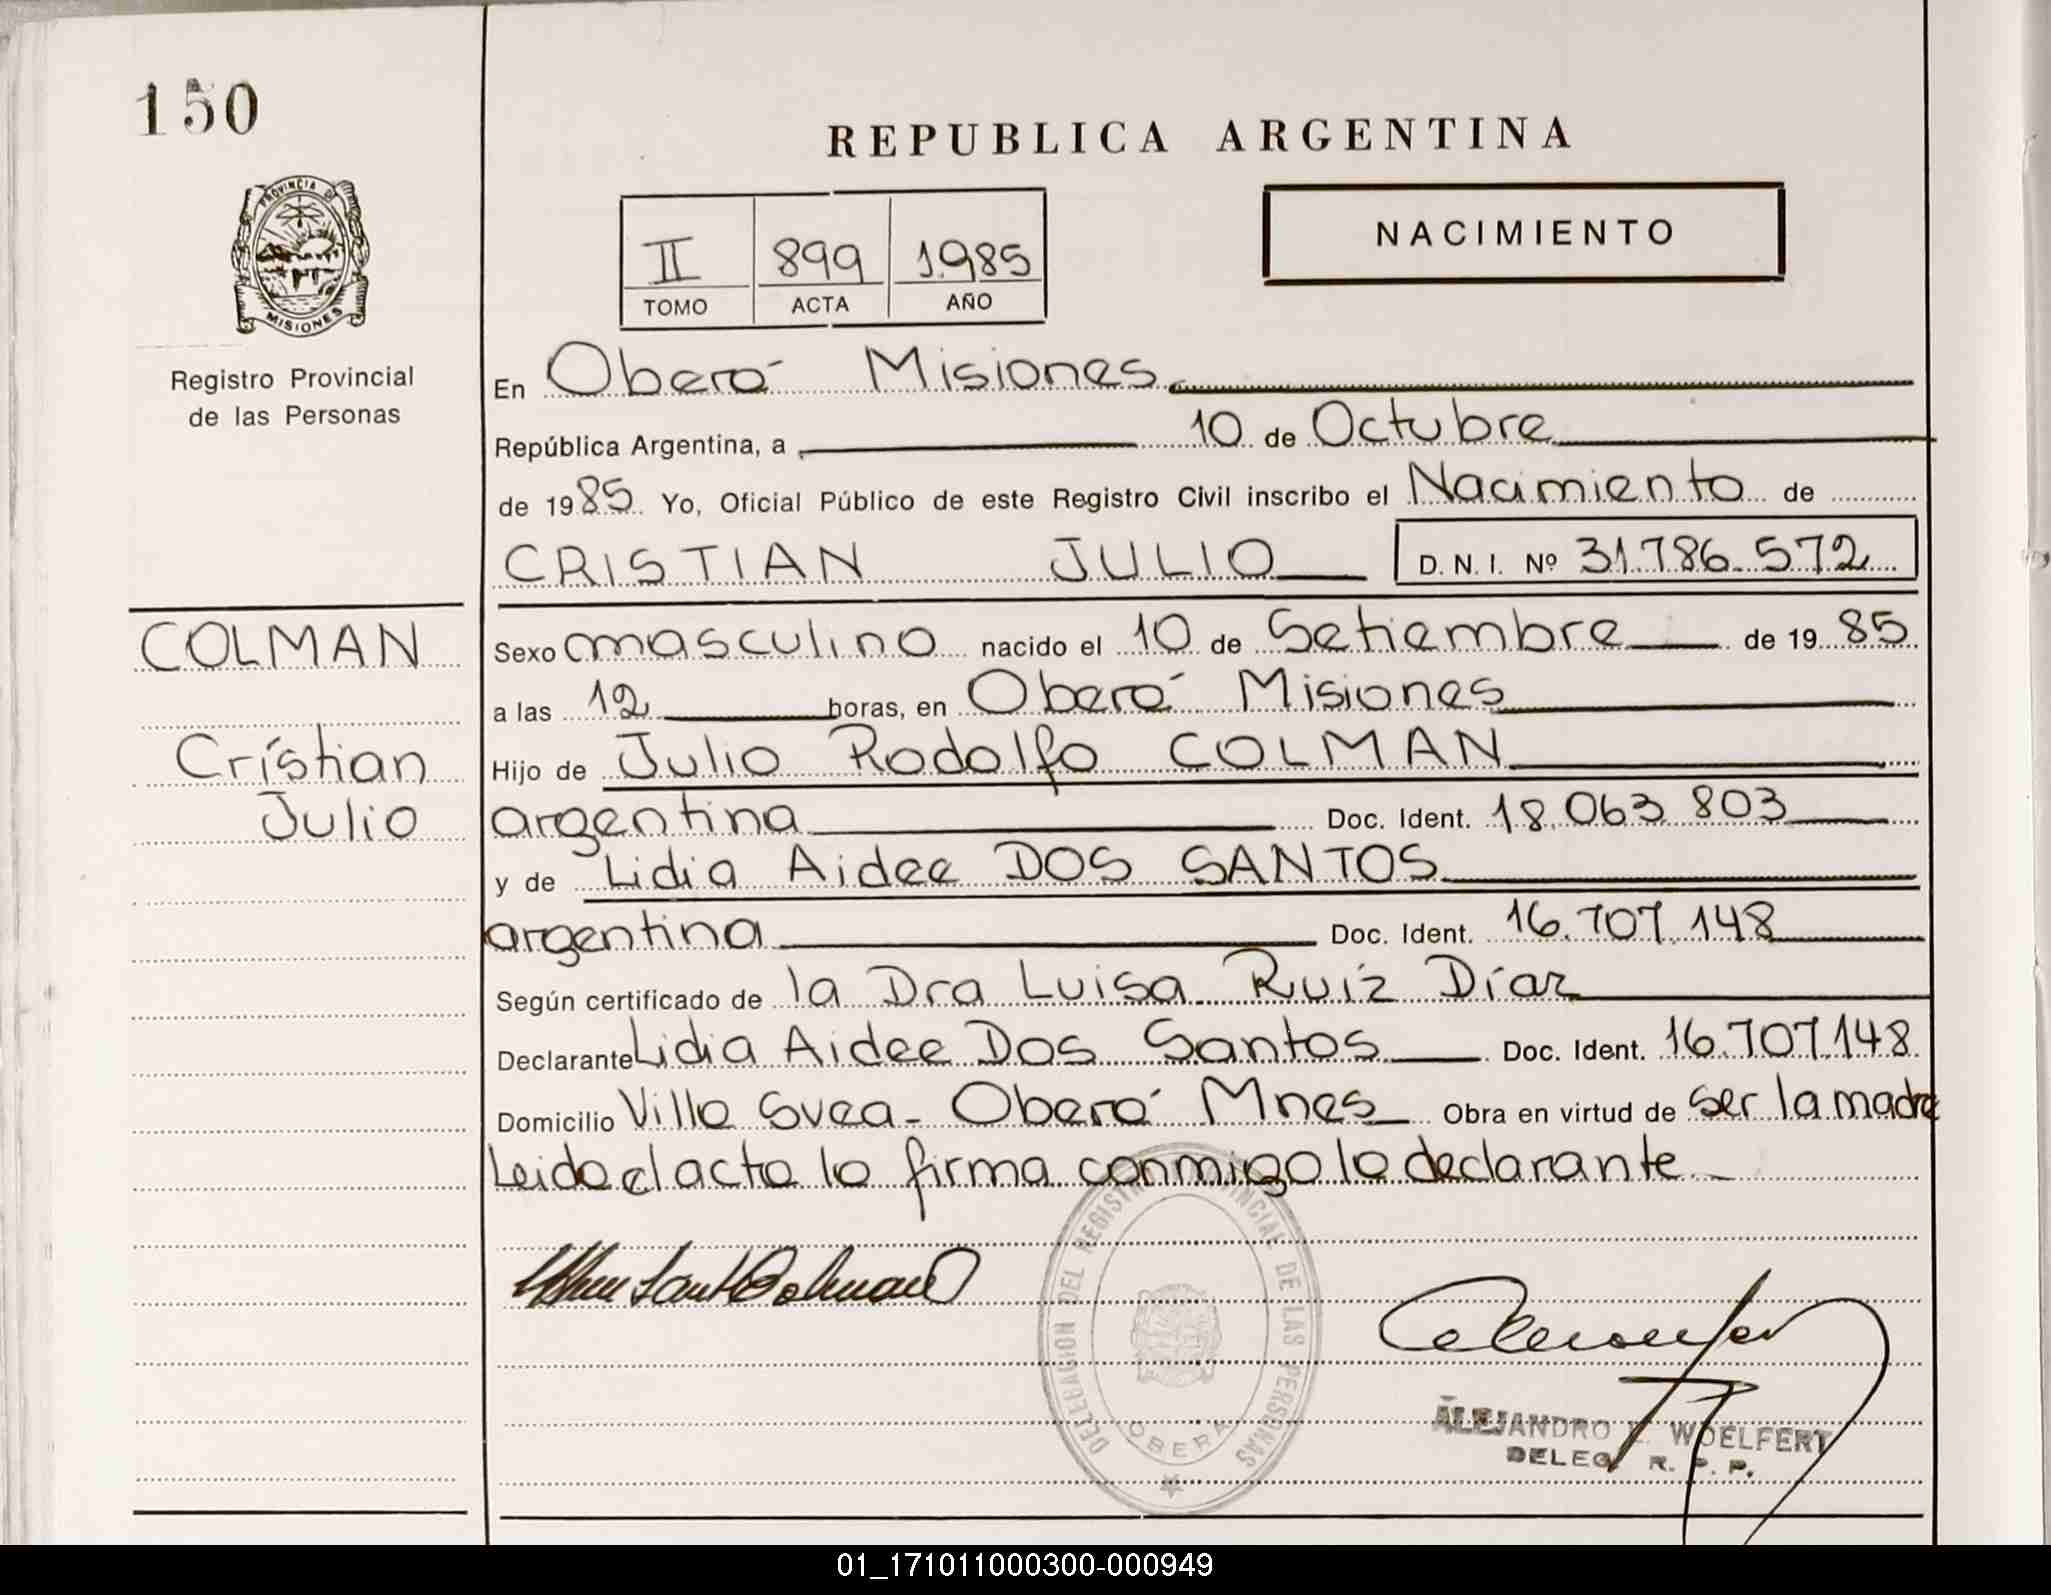 150
REPUBLICA ARGENTINA
PROVINCIA DE
MISIONES
Registro Provincial
de las Personas
II 899 1985
TOMO ACTA AÑO
NACIMIENTO
En Oberá Misiones
República Argentina, a 10 de Octubre
de 1985. Yo, Oficial Público de este Registro Civil inscribo el Nacimiento de
CRISTIAN JULIO D. N. I. Nº 31.786.572
COLMAN
Cristian
Julio
Sexo masculino nacido el 10 de Setiembre de 1985
a las 12 horas, en Oberá Misiones
Hijo de Julio Rodolfo COLMAN
argentina Doc. Ident. 18.063.803
y de Lidia Aidee DOS SANTOS
argentina Doc. Ident. 16.707.148
Según certificado de la Dra Luisa Ruiz Díaz
Declarante Lidia Aidee Dos Santos Doc. Ident. 16.707.148
Domicilio Villa Svea - Oberá Mnes Obra en virtud de ser la madre
Leido el acta la firma conmigo la declarante
DELEGACION DEL REGISTRO PROVINCIAL DE LAS PERSONAS
OBERA
ALEJANDRO WOELFERT
DELEG. R. P. P.
01_171011000300-000949